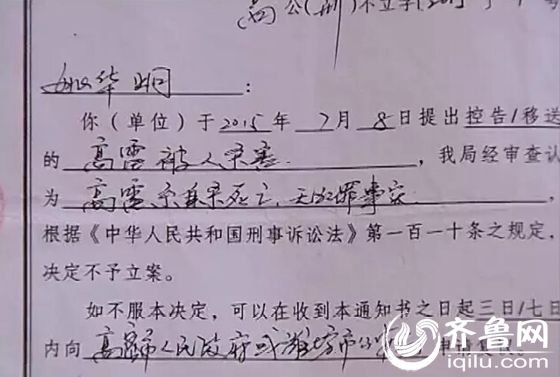 高公(刑)不立字[2015]
姬华明:
你(单位)于2015年7月8日提出控告/移送
的高雷被人杀害,我局经审查认
为高雷系自杀死亡、无犯罪事实,
根据《中华人民共和国刑事诉讼法》第一百一十条之规定,
决定不予立案。
如不服本决定,可以在收到本通知书之日起三日/七日
内向高密市人民政府或潍坊市公
齐鲁网
iqilu.com